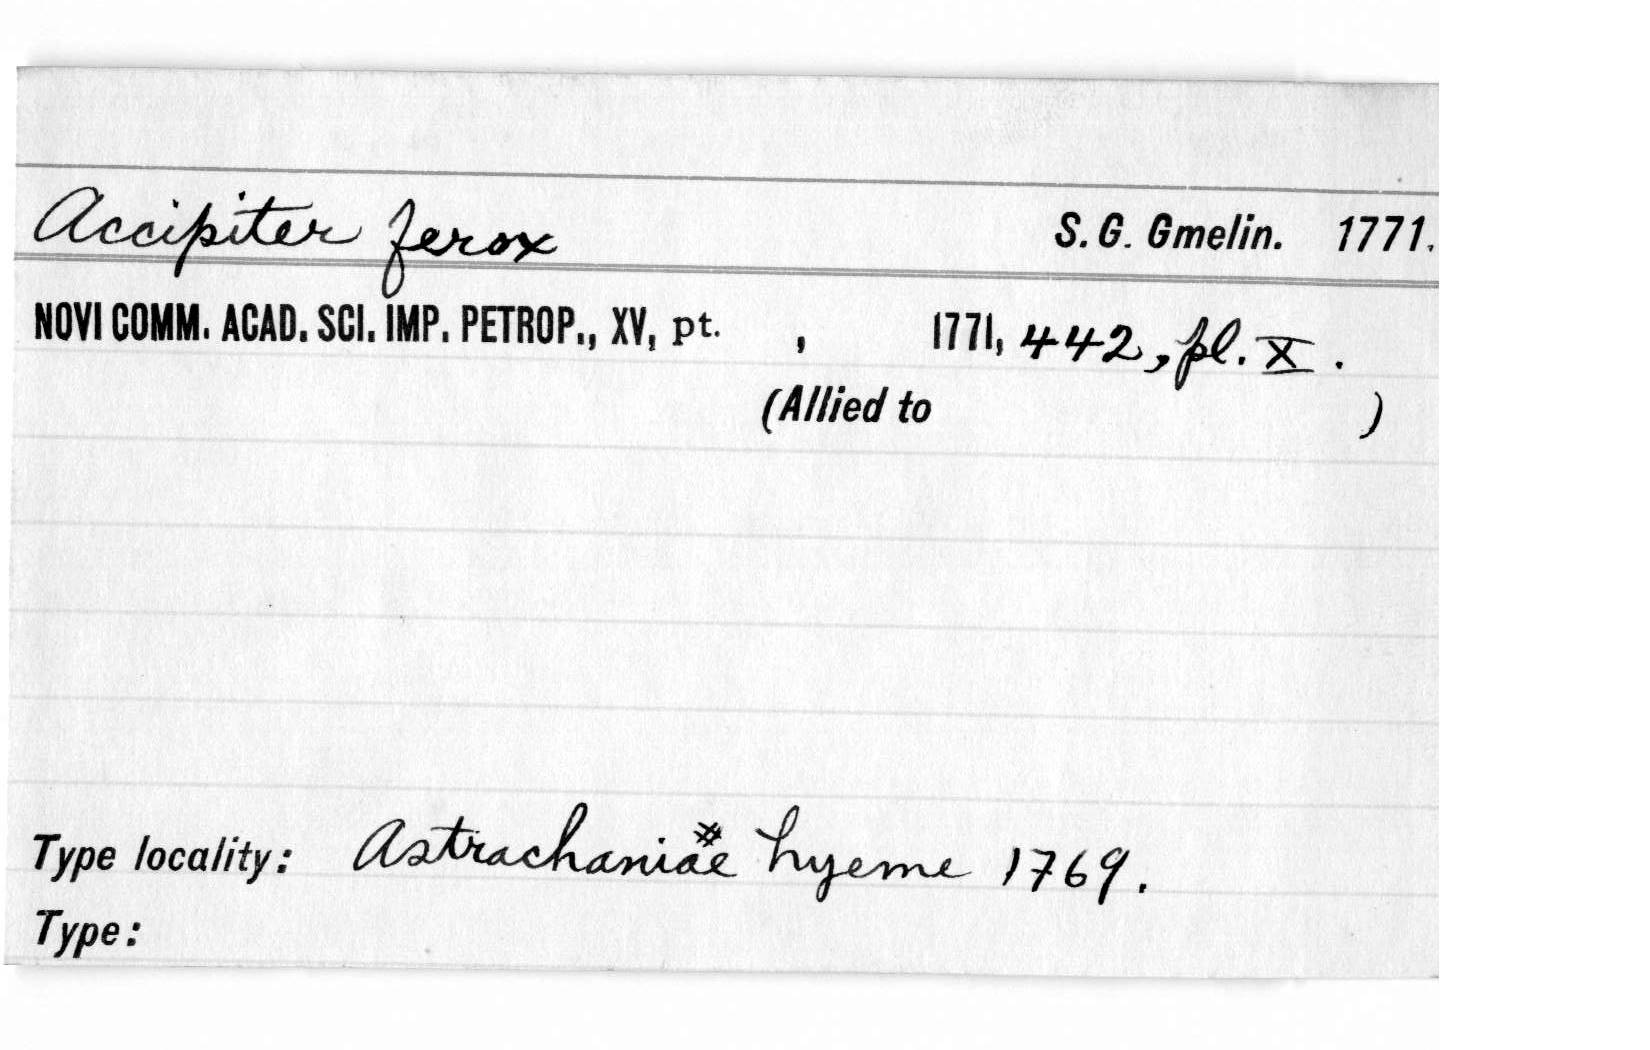 Accipiter ferox S. G. Gmelin. 1771.
NOVI COMM. ACAD. SCI. IMP. PETROP., XV, pt. , 1771, 442, pl. X.
(Allied to )
Type locality: Astrachaniae hyeme 1769.
Type: